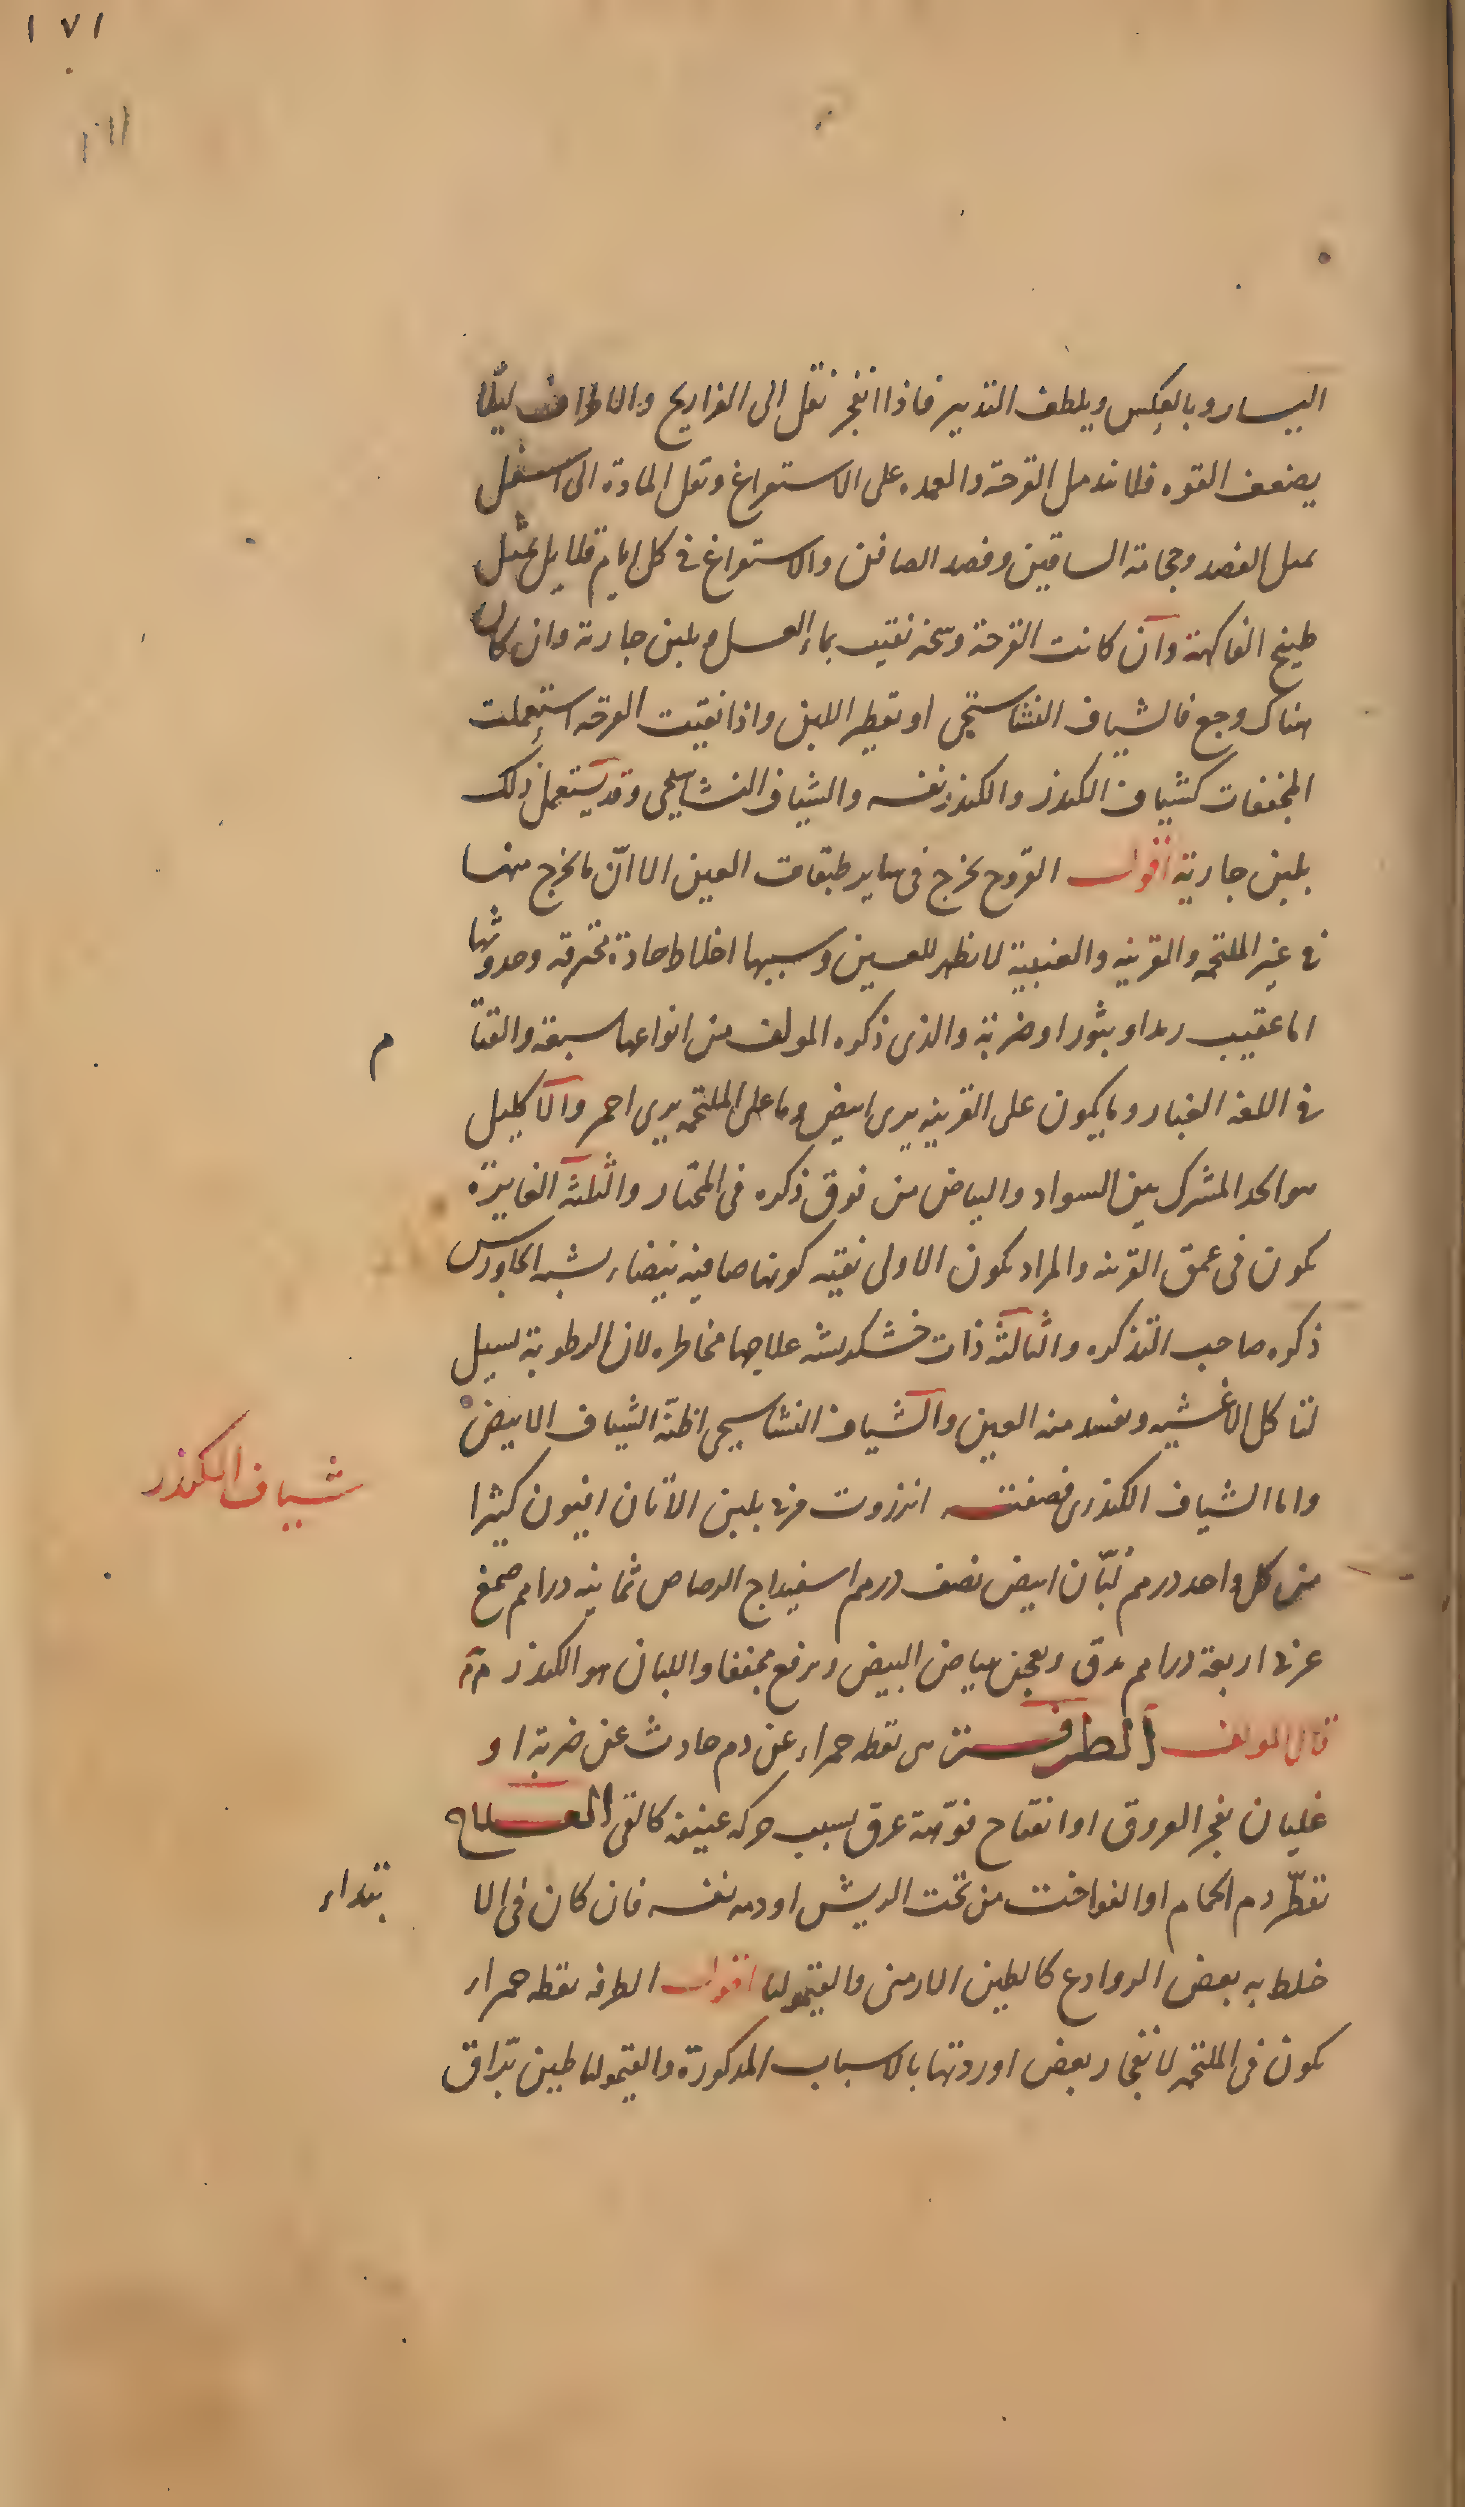 ١٧١
اليسار وبالعكس ويلطف التدبير فاذا انفجر نقل الى الفراريج والاطراف ليلّا
يضعف القوه فلا تندمل القرحة والعمده على الاستفراغ ونقل المادة الى اسفل
بمثل الفصد وحجامة الساقين وفصد الصافن والاستفراغ في كل ايام قلايل بمثل
طبيخ الفاكهة وان كانت القرحة وسخه نقيت بماء العسل وبلبن جارية وان كان
هناك وجع فالشياف النشاستجى او تقطير اللبن واذا نقيت القرحه استعملت
المجففات كشياف الكندر والكندر نفسه والشياف النشاستجى وقد يستعمل ذلك
بلبن جارية اقول القروح تخرج في ساير طبقات العين الا انّ ما يخرج منها
في غير الملتحمه والقرنيه والعنبية لا تظهر للعين وسببها اخلاط حادة محترقه وحدوثها
اما عقيب رمد او بثور او ضربة والذى ذكره المولف من انواعها سبعة والقتا
م
في اللغة الغبار وما يكون على القرنيه يرى ابيض وما على الملتحمه يرى احمر والاكليل
هو الحد المشترك بين السواد والبياض من فوق ذكره في المختار والثلثة الغايرة
يكون في عمق القرنيه والمراد بكون الاولى نقيه كونها صافيه بيضاء يشبه الجاورس
ذكره صاحب التذكره والثالثة ذات خشكريشه علاجها مخاطره لان الرطوبة تسيل
لتاكل الاغشيه وتفسد منه العين والشياف النشاستجى اظنّه الشياف الابيض
شياف الكندر
واما الشياف الكندرى فصفته انزروت مربى بلبن الاتان افيون كثيرا
من كل واحد درهم لبّان ابيض نصف درهم اسفيداج الرصاص ثمانيه دراهم صمغ
عربى اربعة دراهم يدق ويعجن ببياض البيض ويرفع مجففا واللبان هو الكندر
قال المولف الطرفة هى نقطه حمراء عن دم حادث عن ضربة او
غليان يفجر العروق او انفتاح فوّهة عرق بسبب حركه عنيفه كالقى العلاج
يقطّر دم الحمام او الفواخت من تحت الريش او دمه نفسه فان كان في الا
بتداء
خلط به بعض الروادع كالطين الارمنى والقيموليا اقول الطرفه نقطه حمراء
تكون في الملتحمه لانفجار بعض اوردتها بالاسباب المذكورة والقيموليا طين برّاق